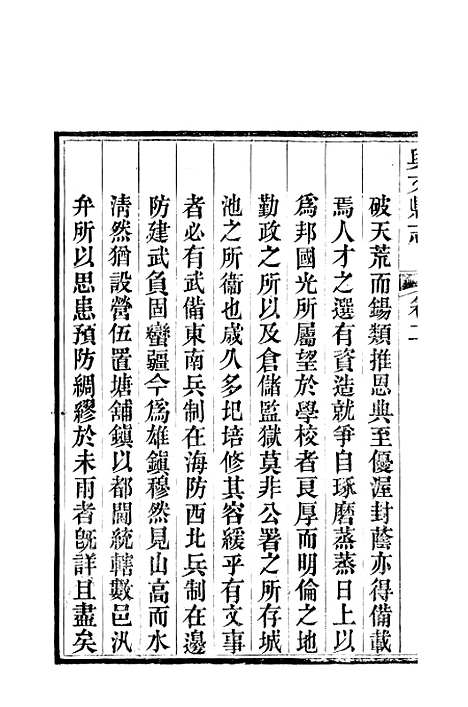 興文縣志
卷二
破天荒而錫類推恩典至優渥封蔭亦得備載
焉人才之選有資造就爭自琢磨蒸蒸日上以
爲邦國光所屬望於學校者良厚而明倫之地
勤政之所以及倉儲監獄莫非公署之所存城
池之所衞也歲久多圯培修其容緩乎有文事
者必有武備東南兵制在海防西北兵制在邊
防建武負固蠻疆今爲雄鎭穆然見山高而水
淸然猶設營伍置塘舖鎭以都閫統轄數邑汛
弁所以思患預防綢繆於未雨者旣詳且盡矣